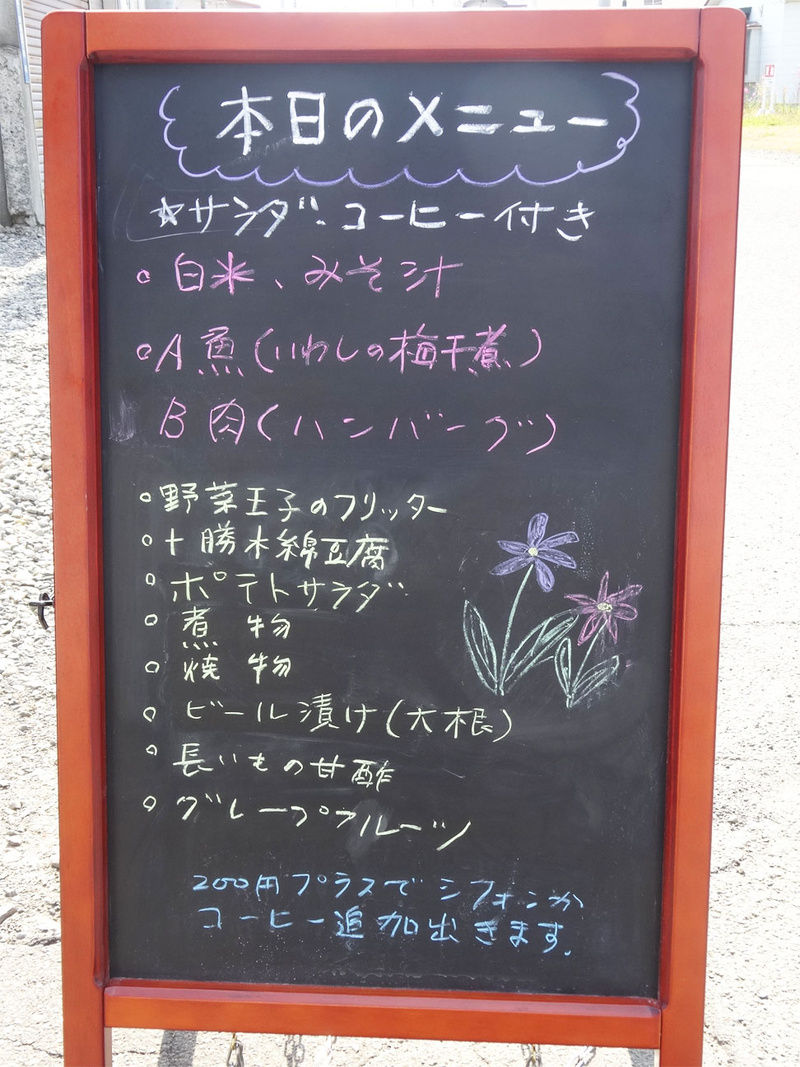 本日のメニュー
☆サラダ・コーヒー付き
○白米、みそ汁
○A 魚(いわしの梅干煮)
B 肉(ハンバーグ)
○野菜玉子のフリッター
○十勝木綿豆腐
○ポテトサラダ
○煮物
○焼物
○ビール漬け(大根)
○長いもの甘酢
○グレープフルーツ
200円プラスでシフォンか
コーヒー追加出きます。